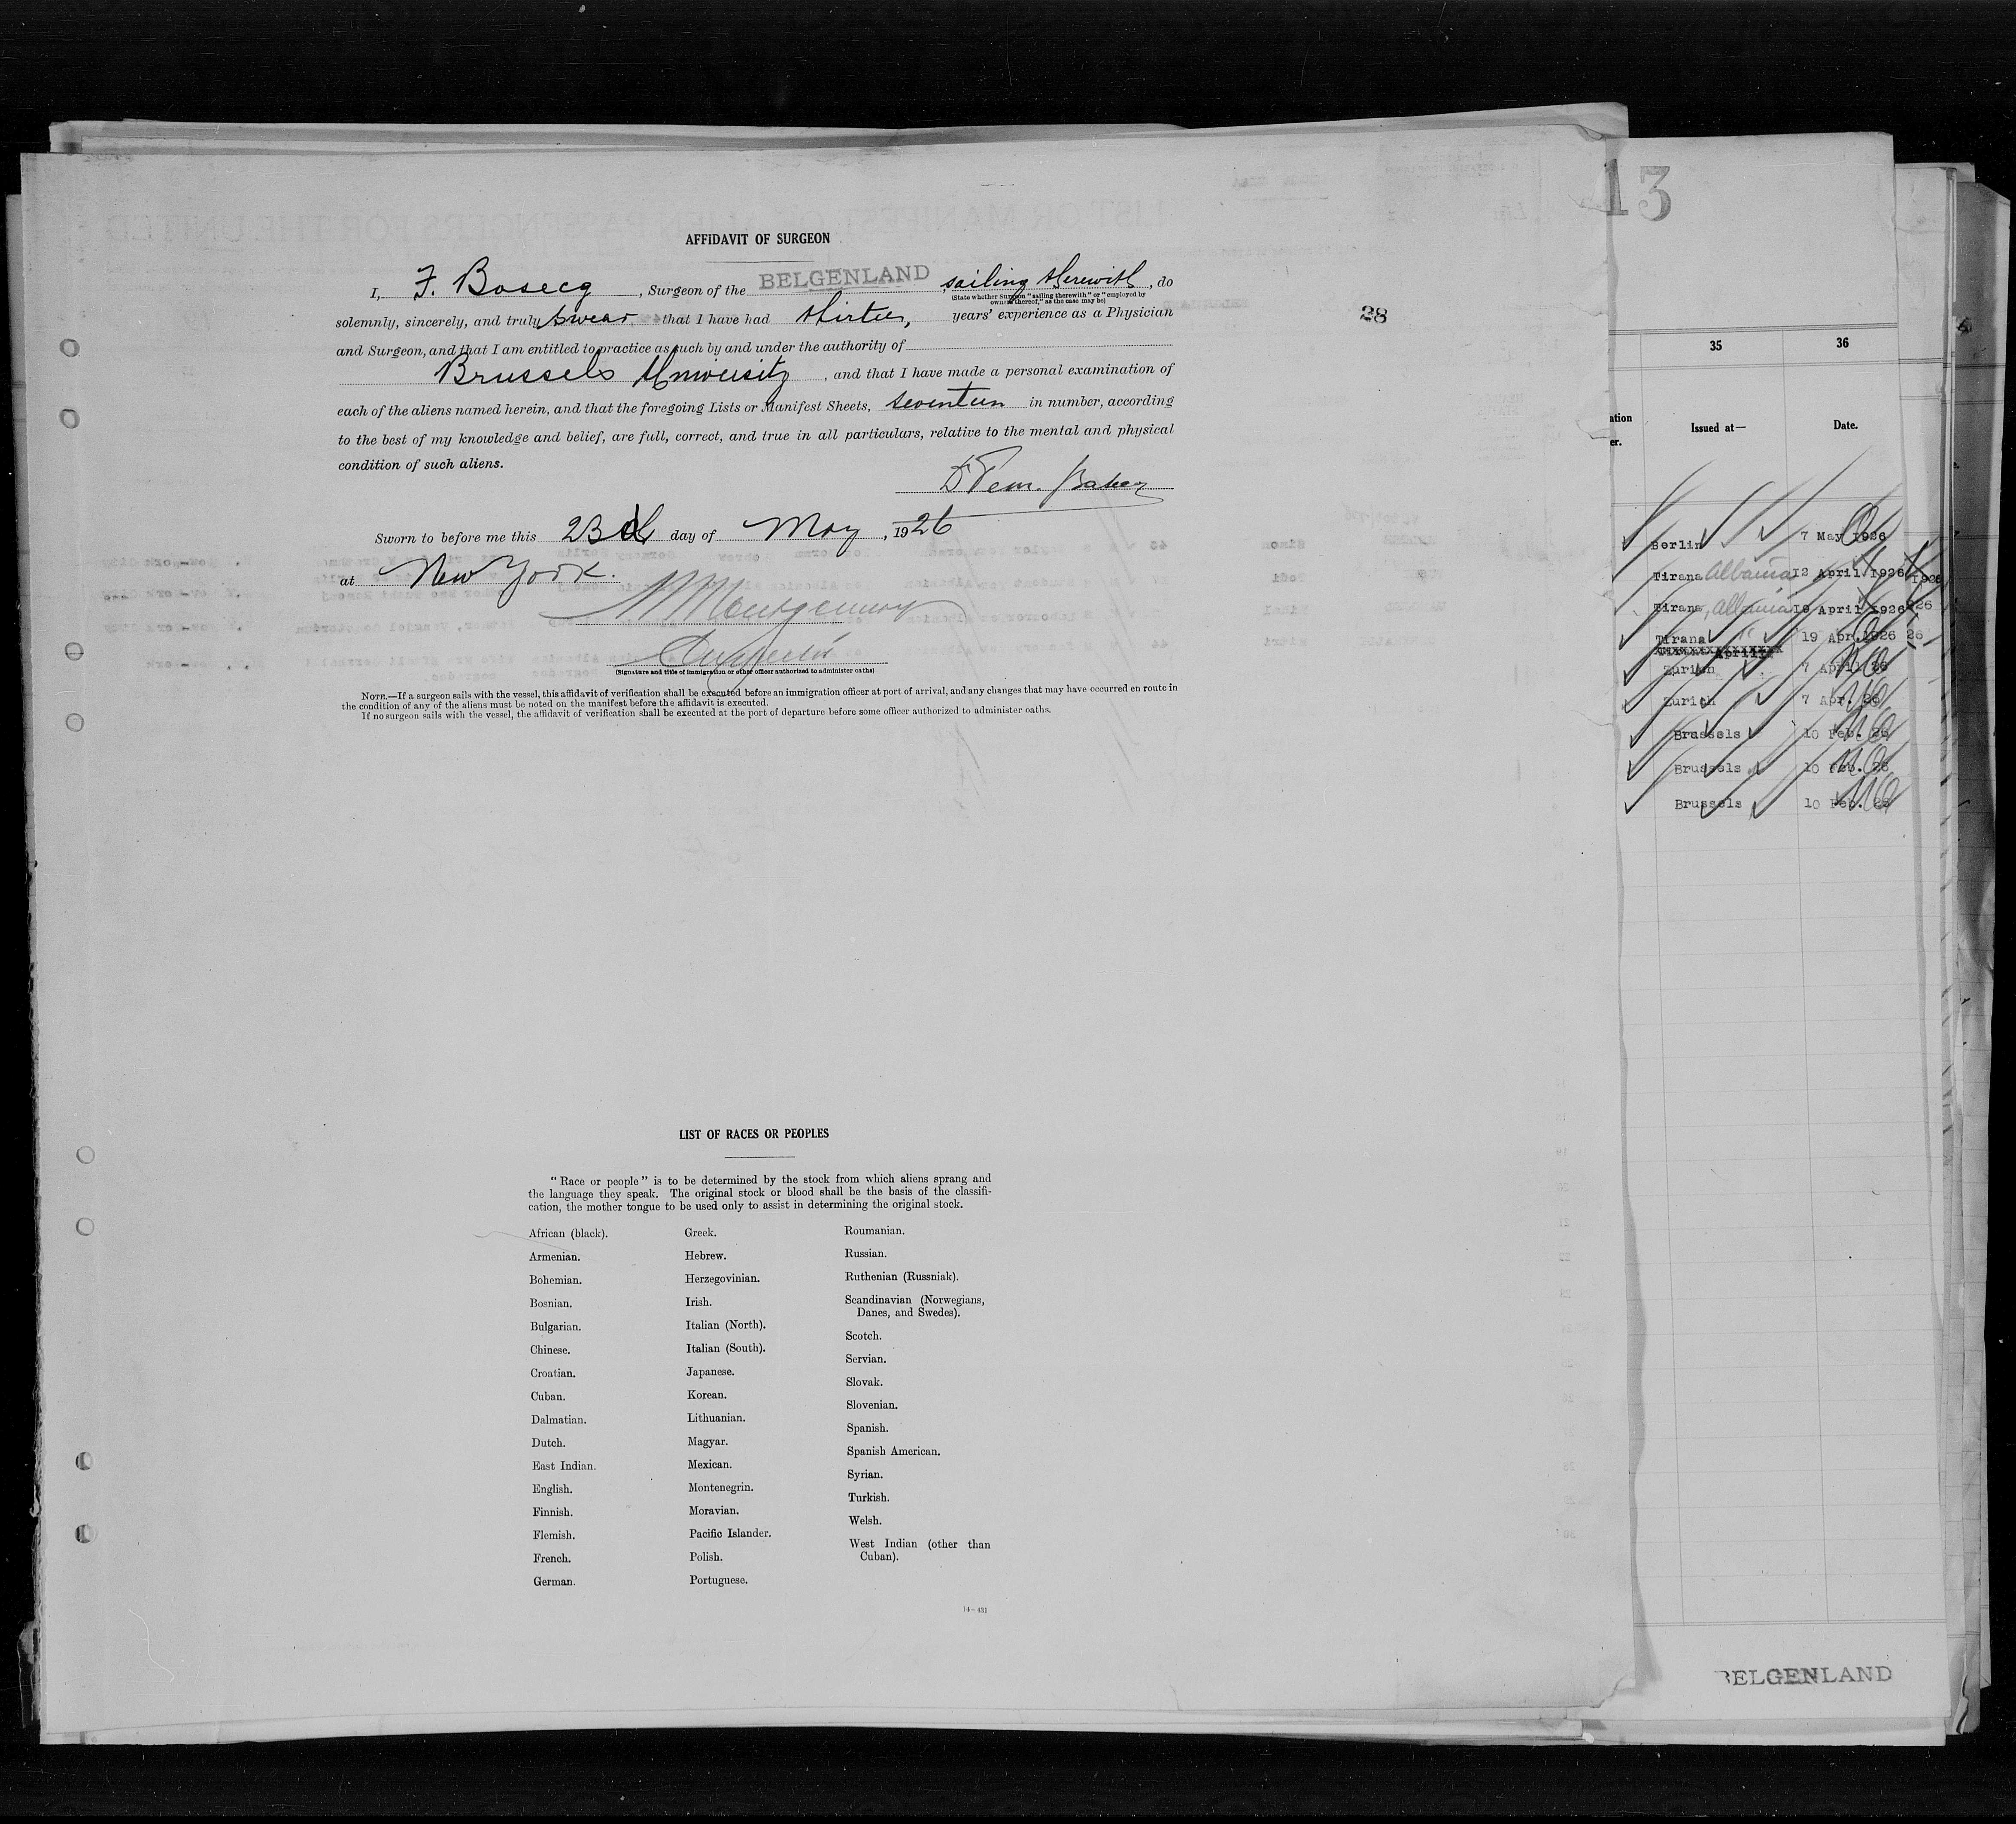 AFFIDAVIT OF SURGEON
I, F. Bosecq, Surgeon of the BELGENLAND, sailing therewith, do
(State whether Surgeon "sailing therewith" or "employed by
owners thereof," as the case may be)
solemnly, sincerely, and truly swear that I have had years' experience as a Physician
and Surgeon, and that I am entitled to practice as such by and under the authority of
Brussels University, and that I have made a personal examination of
each of the aliens named herein, and that the foregoing Lists or Manifest Sheets, seventeen in number, according
to the best of my knowledge and belief, are full, correct, and true in all particulars, relative to the mental and physical
condition of such aliens.
Sworn to before me this 23d day of May, 1926
at New York.
Montgomery
(Signature and title of immigration or other officer authorized to administer oaths)
NOTE.—If a surgeon sails with the vessel, this affidavit of verification shall be executed before an immigration officer at port of arrival, and any changes that may have occurred en route in
the condition of any of the aliens must be noted on the manifest before the affidavit is executed.
If no surgeon sails with the vessel, the affidavit of verification shall be executed at the port of departure before some officer authorized to administer oaths.
28
LIST OF RACES OR PEOPLES
"Race or people" is to be determined by the stock from which aliens sprang and
the language they speak. The original stock or blood shall be the basis of the classifi-
cation, the mother tongue to be used only to assist in determining the original stock.
African (black).
Armenian.
Bohemian.
Bosnian.
Bulgarian.
Chinese.
Croatian.
Cuban.
Dalmatian.
Dutch.
East Indian.
English.
Finnish.
Flemish.
French.
German.
Greek.
Hebrew.
Herzegovinian.
Irish.
Italian (North).
Italian (South).
Japanese.
Korean.
Lithuanian.
Magyar.
Mexican.
Montenegrin.
Moravian.
Pacific Islander.
Polish.
Portuguese.
Roumanian.
Russian.
Ruthenian (Russniak).
Scandinavian (Norwegians,
Danes, and Swedes).
Scotch.
Servian.
Slovak.
Slovenian.
Spanish.
Spanish American.
Syrian.
Turkish.
Welsh.
West Indian (other than
Cuban).
14—431
13
35 36
ation Issued at— Date.
er.
Berlin 7 May 1926
Tirana Albania 12 April 1926 1926
Tirana, Albania 19 April 1926 26
Tirana " 19 Apr. 1926 26
Zurich 7 April 26
Zurich 7 Apr. 26
Brussels 10 Feb. 26
Brussels 10 Feb. 26
Brussels 10 Feb. 26
BELGENLAND